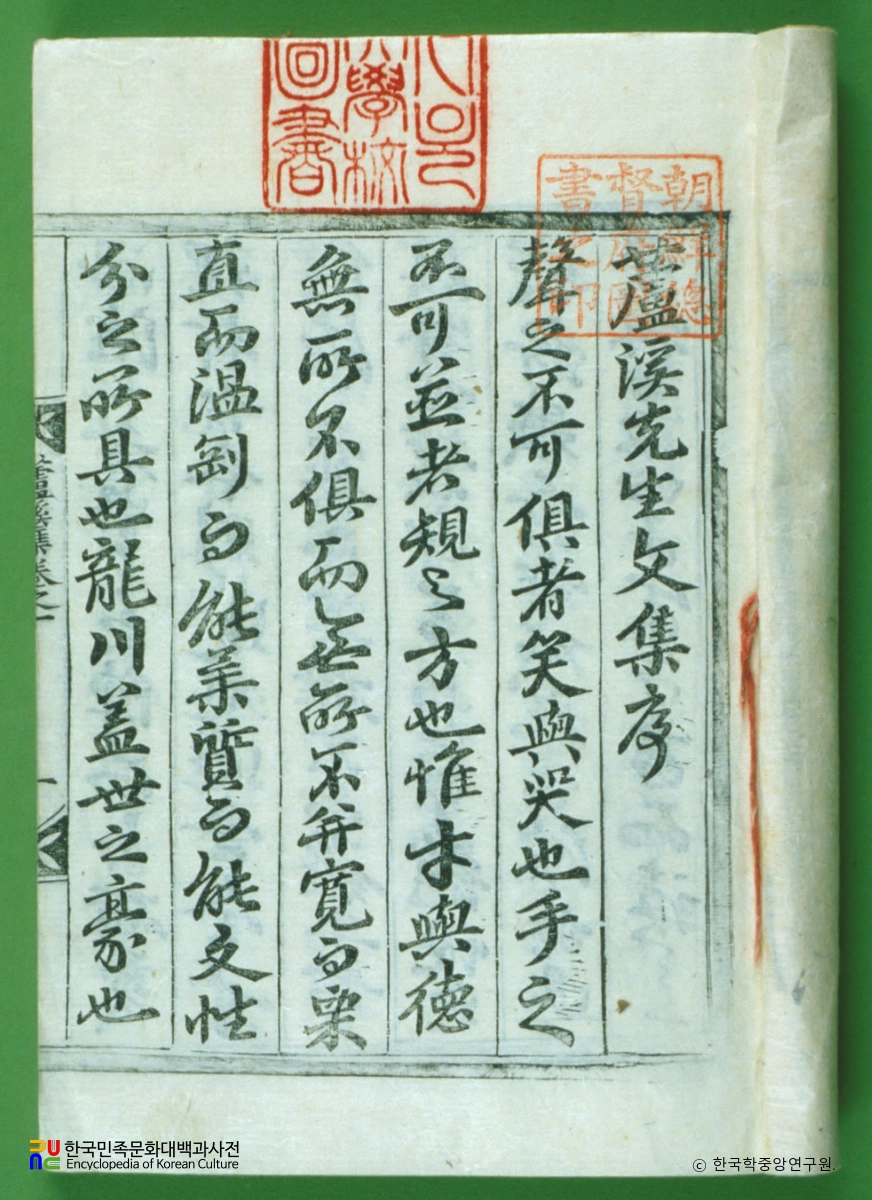 서울
大學校
圖書
朝鮮總
督府圖
書之印
蘆溪先生文集序
聲之不可俱者笑與哭也手之
不可並者規与方也惟才與德
無所不俱而無所不并寬而栗
直而溫剛而能柔質而能文性
分之所具也龍川盖世之豪也
蘆溪集卷之一
一
한국민족문화대백과사전
Encyclopedia of Korean Culture
© 한국학중앙연구원.